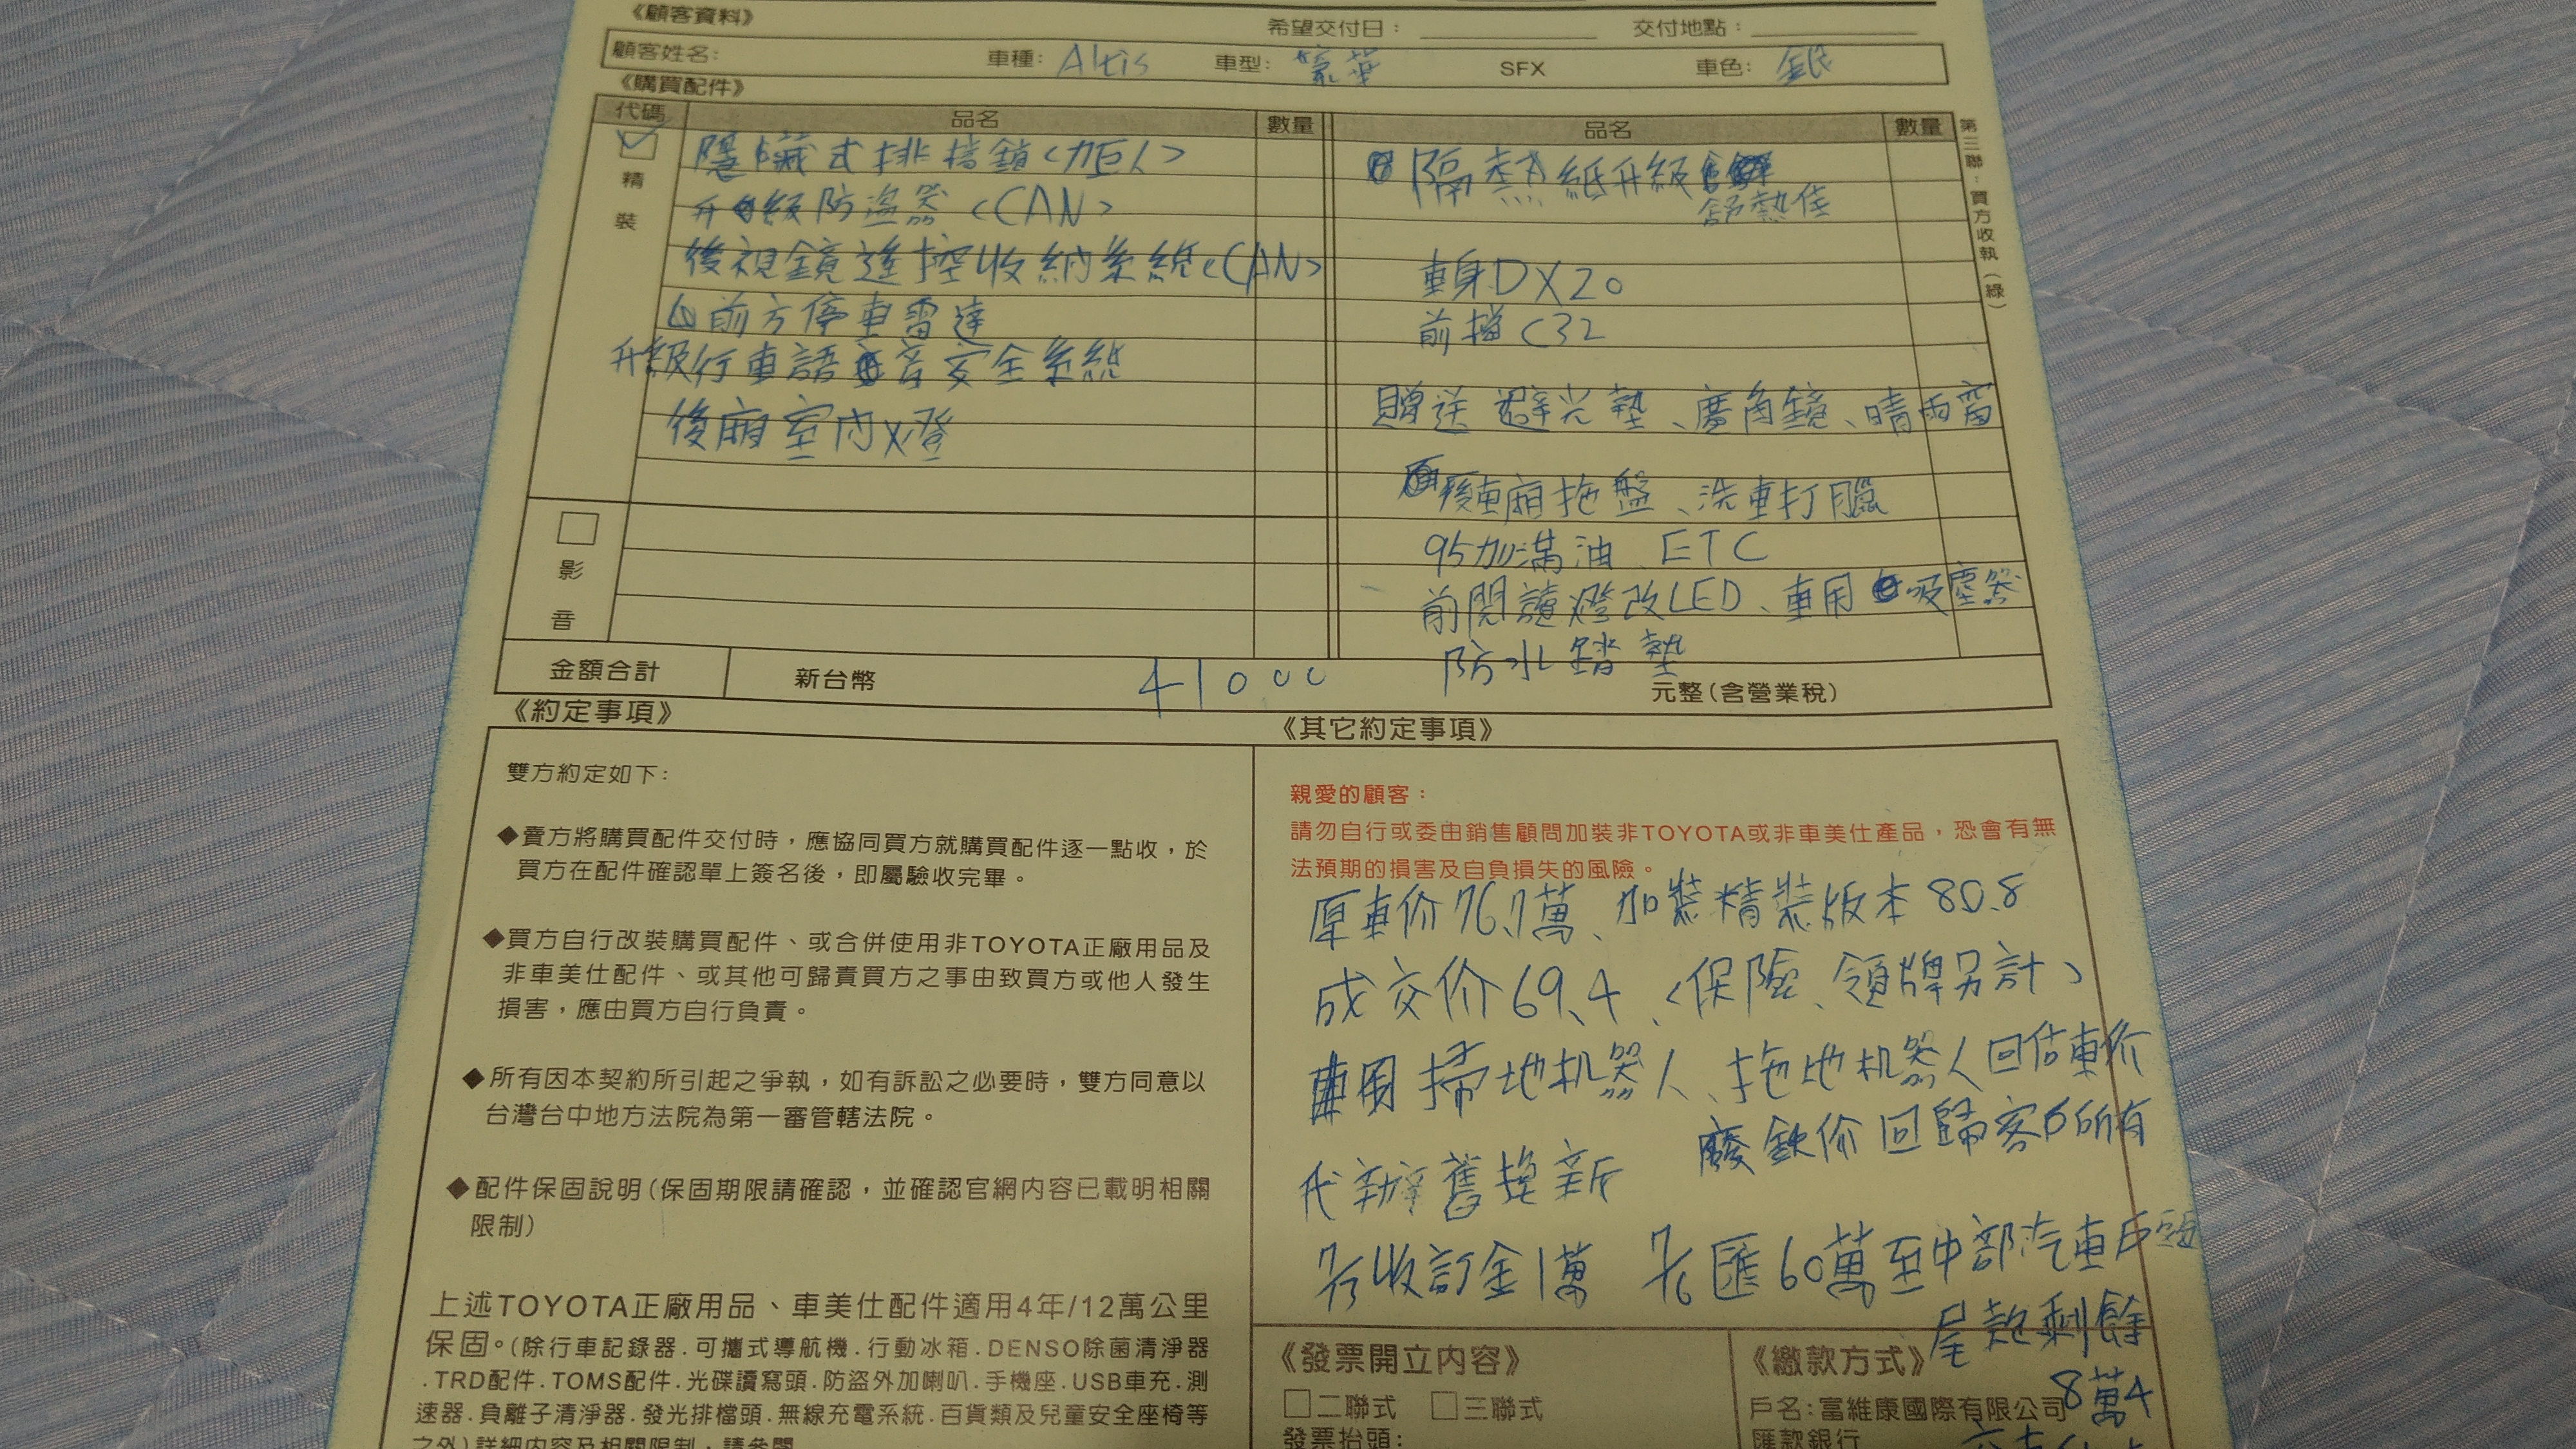 《顧客資料》 希望交付日： 交付地點：
顧客姓名： 車種：Altis 車型：豪華 SFX 車色：銀
《購買配件》
代碼 品名 數量 品名 數量
第三聯：買方收執（綠）
精裝
隱藏式排檔鎖<加巨人>
升級防盜器<CAN>
後視鏡遙控收納系統<CAN>
前方停車雷達
升級行車語音安全系統
後廂室內燈
影音
隔熱紙升級
舒熱佳
車身DX20
前擋C32
贈送避光墊、廣角鏡、晴雨窗
後車廂拖盤、洗車打臘
95加滿油、ETC
前閱讀燈改LED、車用吸塵器
防水踏墊
金額合計 新台幣 41000 元整(含營業稅)
《約定事項》
雙方約定如下:
◆賣方將購買配件交付時，應協同買方就購買配件逐一點收，於
買方在配件確認單上簽名後，即屬驗收完畢。
◆買方自行改裝購買配件、或合併使用非TOYOTA正廠用品及
非車美仕配件、或其他可歸責買方之事由致買方或他人發生
損害，應由買方自行負責。
◆所有因本契約所引起之爭執，如有訴訟之必要時，雙方同意以
台灣台中地方法院為第一審管轄法院。
◆配件保固說明(保固期限請確認，並確認官網內容已載明相關
限制)
上述TOYOTA正廠用品、車美仕配件適用4年/12萬公里
保固。(除行車記錄器.可攜式導航機.行動冰箱.DENSO除菌清淨器
.TRD配件.TOMS配件.光碟讀寫頭.防盜外加喇叭.手機座.USB車充.測
速器.負離子清淨器.發光排檔頭.無線充電系統.百貨類及兒童安全座椅等
之外)詳細內容及相關限制，請參閱
《其它約定事項》
親愛的顧客：
請勿自行或委由銷售顧問加裝非TOYOTA或非車美仕產品，恐會有無
法預期的損害及自負損失的風險。
原車价76.7萬、加裝精裝版本80.8
成交价69.4、<保險、領牌另計>
車用掃地机器人、拖地机器人回估車价
廢鉄价回歸客戶所有
代辦舊換新
7/5收訂金1萬 7/6匯60萬至中部汽車戶頭
尾款剩餘
8萬4
《發票開立內容》
□二聯式 □三聯式
發票抬頭:
《繳款方式》
戶名:富維康國際有限公司
匯款銀行